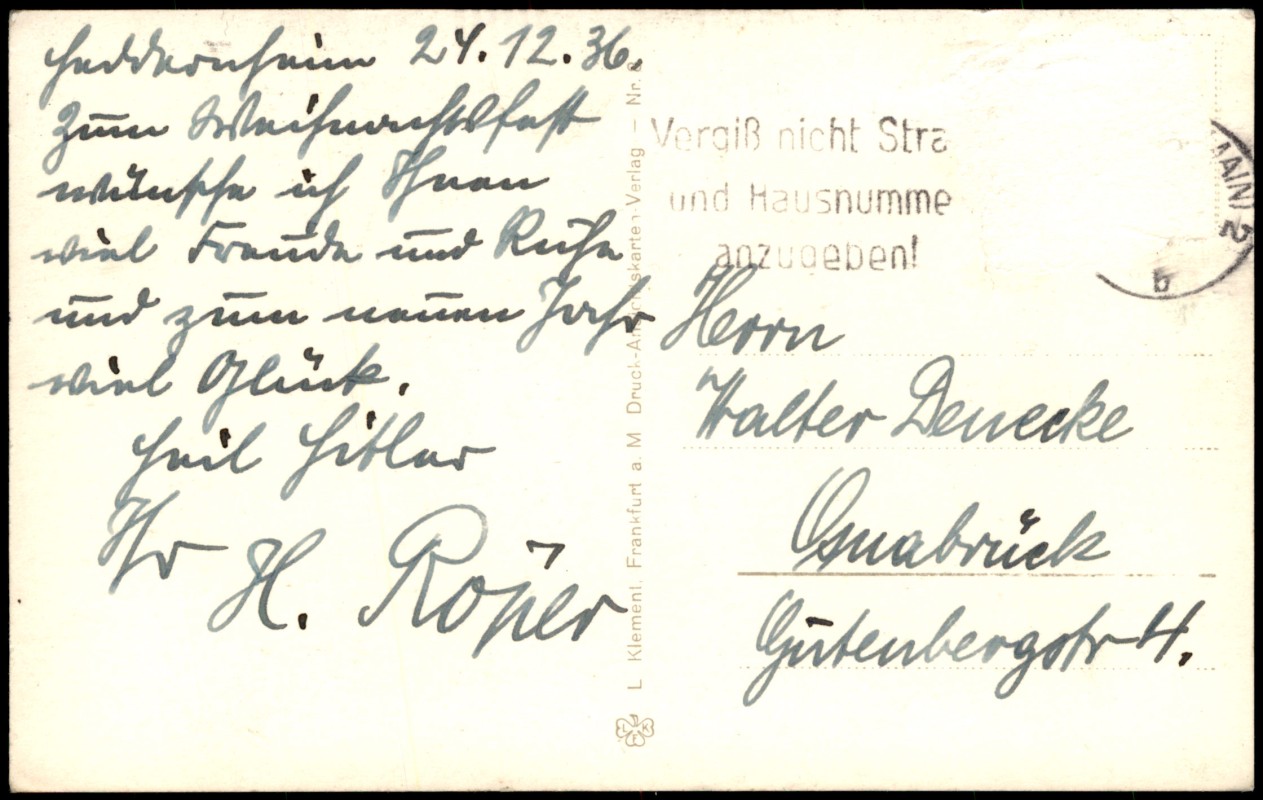 Heddernheim 24.12.36.
Zum Weihnachtsfest
wünsche ich Ihnen
viel Freude und Ruhe
und zum neuen Jahr
viel Glück.
Heil Hitler
Ihr H. Röper
L Klement, Frankfurt a. M Druck-Ansichtskarten-Verlag – Nr.
LKF
Vergiß nicht Stra
und Hausnumme
anzugeben!
MAIN) 2
b
Herrn
Walter Denecke
Osnabrück
Gutenbergstr 4.